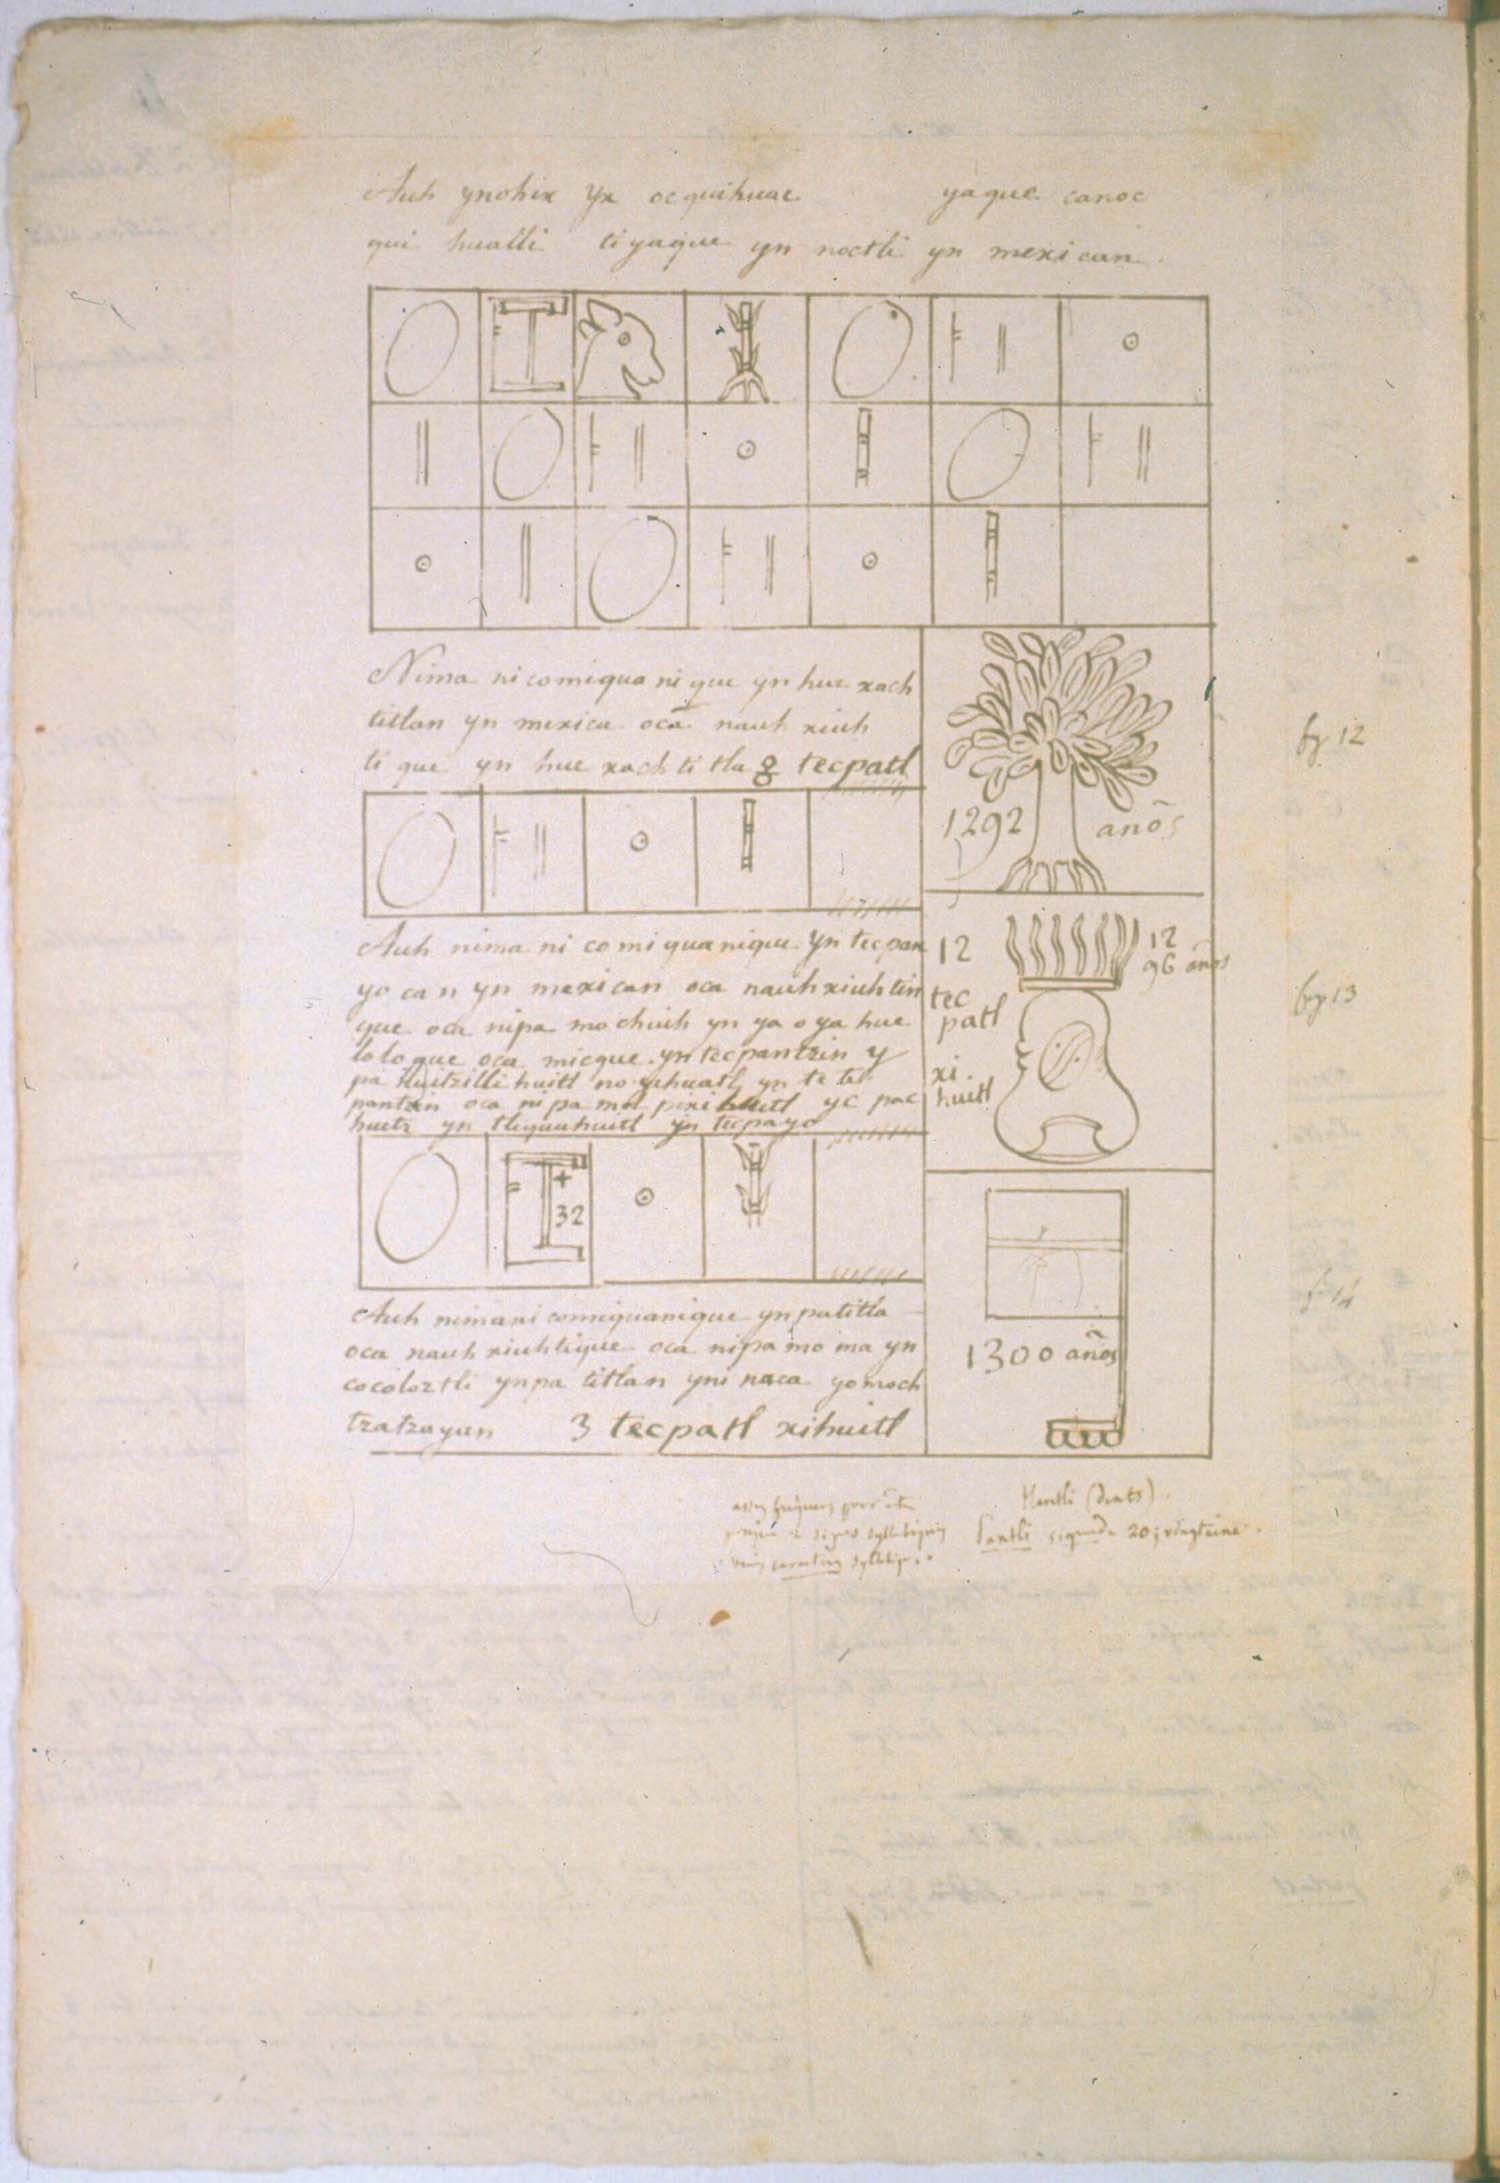 Auh ynohix yx ocquihuac yaque canoc
qui hualli tiyaque yn noctli yn mexican.
Nima nicomiqua nique yn hue xach
titlan yn mexica oca nauh xiuh
ti que yn hue xach ti tla 8 tecpatl
1292 años
fig 12
Auh nima ni co mi quanique yn tecpan
yo ca n yn mexican oca nauh xiuh tin
que oca nipa mochiuh yn ya o ya hue
lolo que oca micque yn tecpantzin y
pa huitzilli huitl no yehuatl yn te
pantzin oca ni pa mo pixi huitl yc pac
huetz yn tlequahuitl yn tecpayo
12
tec
patl
xi.
huitl
12
96 años
fig 13
+
32
Auh nimani comiquanique yn patitla
oca nauh xiuhtique oca nipa mo ma yn
cocoloztli yn pa titlan yni naca yomoch
tzatzayan 3 tecpatl xihuitl
1300 años
fig 14
Mantli (dents).
Pantli signifie 20; vingtaine.